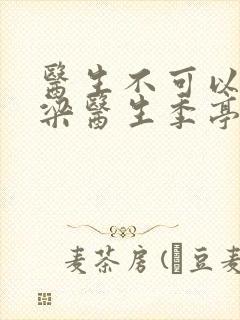 醫生不可以
梁醫生季亭
麦茶房(豆麦